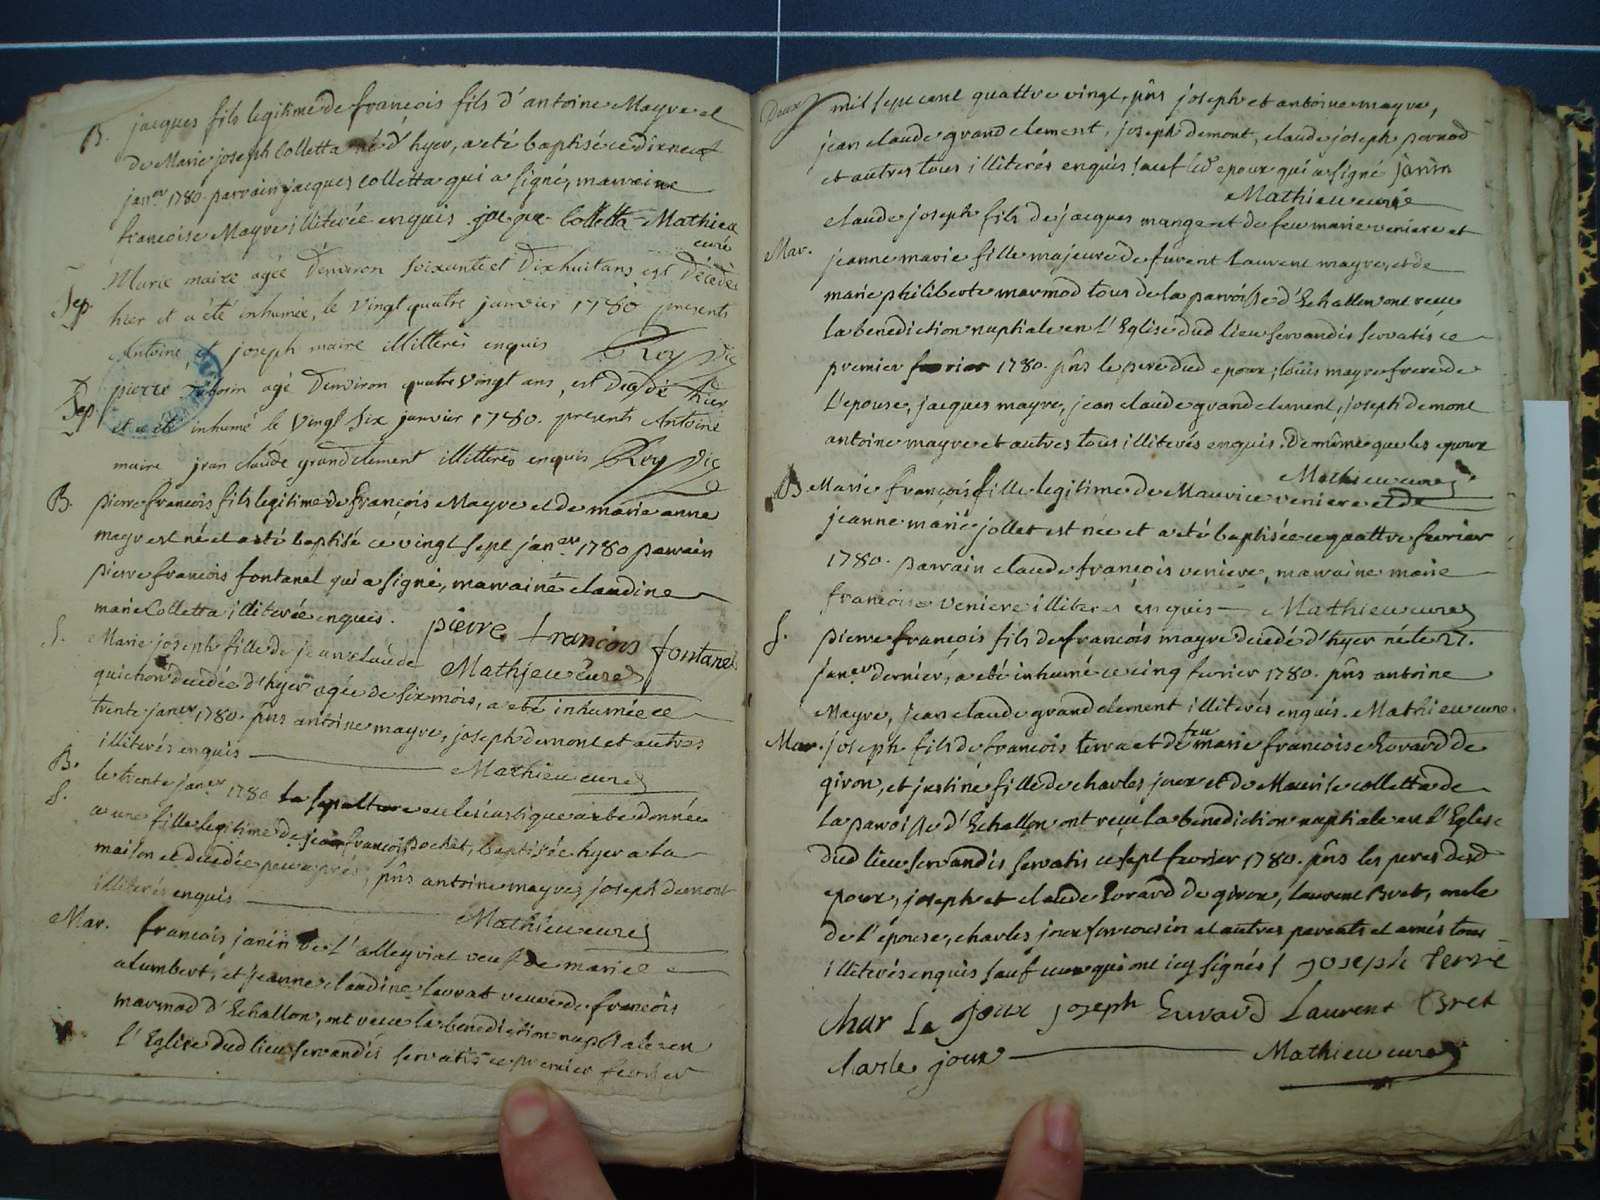 B. jacques fils legitime de francois fils d'antoine Mayre et
de Marie joseph Colletta né d'hyer, a eté baptisé ce dixneuf
janer 1780. parrain jacques colletta qui a signé, marraine
francoise Mayre illiterée enquis. jacque Colletta Mathieu
curé
Sep. Marie maire agée denviron soixante et dixhuit ans est décédée
hier et a été inhumée, le vingt quatre janvier 1780 presents
Antoine et joseph maire illitterés enquis Roy Vic
Sep. pierre agé denviron quatre vingt ans, est decedé hier
et a été inhumé le vingt six janvier 1780. presents Antoine
maire jean claude grandclement illitterés enquis Roy Vic
B. pierre francois fils legitime de françois Mayre et de marie anne
mayr est né et a eté baptisé ce vingt sept janer 1780 parrain
pierre francois fontanel qui a signé, marraine claudine
marie Colletta illiterée enquis. pierre francois fontanel
S. Marie joseph fille de jean claude Mathieu curé
quichon decedée d'hyer agée de six mois, a eté inhumée ce
trente janer 1780. pns antoine mayre, joseph demont et autres
illiterés enquis Mathieu curé
B. S. le trente janer 1780 la sepulture eclesiastique a eté donnée
a une fille legitime de jean françois Rochet, baptisée hyer a la
maison et decedée peu aprés, pns antoine mayre, joseph demont
illiterés enquis Mathieu curé
Mar. francois janin de l'alleyriat veuf de marie
alumbert, et jeanne claudine veuve de francois
marmod d'Echallon, ont receu la benediction nuptiale en
l'Eglise dud lieu servandis servatis ce premier fevrier
Deux mil sept cent quattre vingt, pns joseph et antoine mayre,
jean claude grand clement, joseph demont, claude joseph pernod
et autres tous illiterés enquis sauf led epoux qui a signé janin
Mathieu curé
Mar. claude joseph fils de jacques manget et de feu marie veniere et
jeanne marie fille majeure de furent Laurent mayre, et de
marie philiberte marmod tous de la parroisse d'Echallon ont receu
la benediction nuptiale en l'Eglise dud lieu servandis servatis ce
premier fevrier 1780. pns le pere dud epoux, loüis mayre frere de
L'epouse, jacques mayre, jean claude grand clement, joseph demont
antoine mayre et autres tous illiterés enquis. De même que les epoux
Mathieu curé
B. Marie françois fille legitime de Maurice veniere et de
jeanne marie jollet est née et a eté baptisée ce quattre fevrier
1780. parrain claude françois veniere, marraine marie
francoise veniere illiteres enquis Mathieu curé
S. pierre françois fils de francois mayre decedé d'hyer né le 27.
janer dernier, a eté inhumé ce cinq fevrier 1780. pns antoine
Mayre, jean claude grand clement illiterés enquis. Mathieu curé
Mar. joseph fils de francois terra et de feu marie francoise Evrard de
giron, et justine fille de charles joux et de Maurise colletta de
la paroisse d'Echallon ont receu la benediction nuptiale en l'Eglise
dud lieu servandis servatis ce sept fevrier 1780. pns les peres desd
epoux, joseph et claude Evrard de giron, laurent Bret, oncle
de l'epouse, charles joux son cousin et autres parents et amis tous
illiterés enquis sauf ceux qui ont icy signés / joseph terre
Char le joux joseph Euvard Laurent Bret
charle joux Mathieu curé